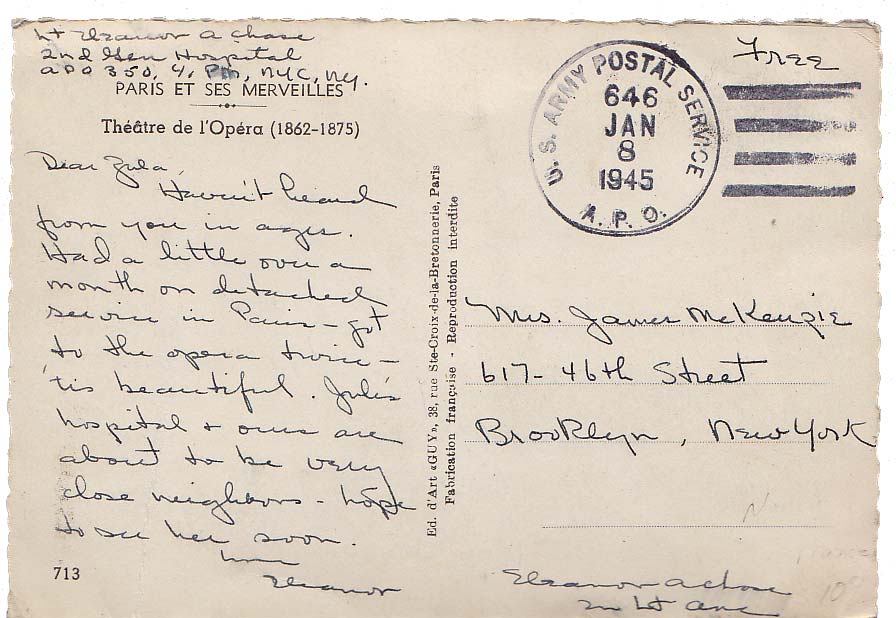 Lt Eleanor A Chase
2nd Gen Hospital
APO 350, % PM, NYC, NY.
PARIS ET SES MERVEILLES
Théâtre de l'Opéra (1862-1875)
Dear Zula,
Haven't heard
from you in ages.
Had a little over a
month on detached
service in Paris - got
to the opera twice -
'tis beautiful. Jule's
hospital + ours are
about to be very
close neighbors - hope
to see her soon.
Eleanor
713
Ed. d'Art «GUY», 38, rue Ste-Croix-de-la-Bretonnerie, Paris
Fabrication française - Reproduction interdite
U. S. ARMY POSTAL SERVICE
646
JAN
8
1945
A. P. O.
Free
Mrs. James McKenzie
617 - 46th Street
Brooklyn, New York
Eleanor A Chase
2n Lt ANC
10